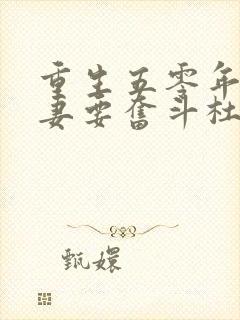 重生五零年
妻要奮斗杜
甄嬛